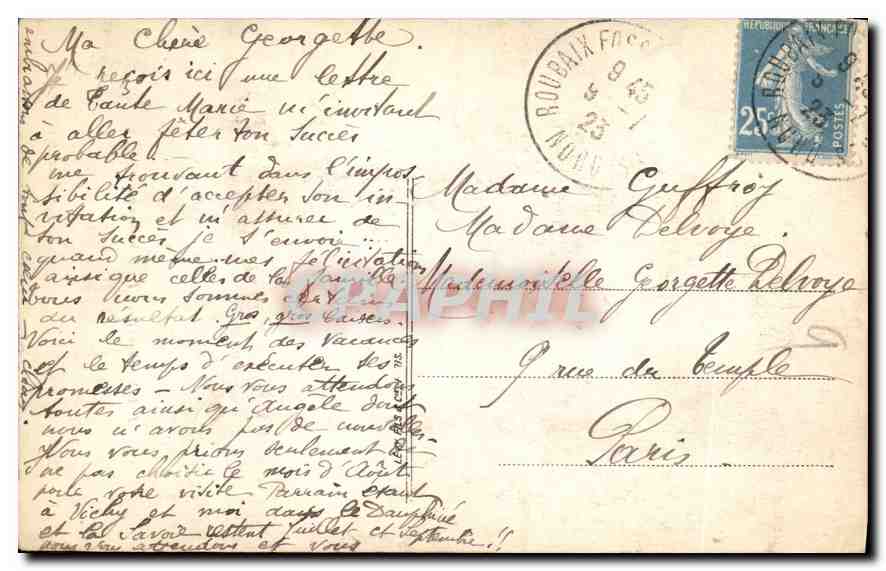 Ma Chère Georgette.
Je reçois ici une lettre
de Tante Marie m'invitant
à aller fêter ton Succès
probable.
me trouvant dans l'impos
sibilité d'accepter son in-
vitation et m'assurer de
ton Succès je t'envoie...
quand même mes félicitations
ainsi que celles de la famille
nous sommes certains
du résultat. Gros, gros baisers.
Voici le moment des vacances
et le temps d'exécuter tes
promesses - Nous vous attendons
toutes ainsi qu'Angèle dont
nous n'avons pas de nouvelles-
Nous vous prions seulement de
ne pas choisir le mois d'Août
pour votre visite Parrain étant
à Vichy et moi dans le Dauphiné
et la Savoie restent Juillet et septembre!!
nous vous attendons et vous
embrassons de tout cœur
ROUBAIX FOSS
NORD
9 45
5 - 1
23
REPUBLIQUE FRANÇAISE
25c
POSTES
ROUBAIX
NORD
23
Madame Guffroy
Madame Delvoye.
Mademoiselle Georgette Delvoye
9 rue du Temple
Paris
9
LEVY FILS & Cie
CPAPHIL